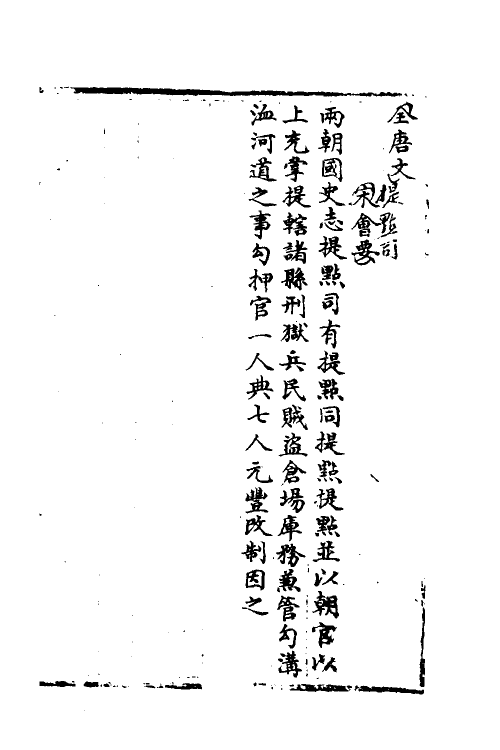 全唐文
提點司
宋會要
兩朝國史志提點司有提點同提點提點並以朝官以
上充掌提轄諸縣刑獄兵民賊盜倉場庫務兼管勾溝
洫河道之事勾押官一人典七人元豐改制因之